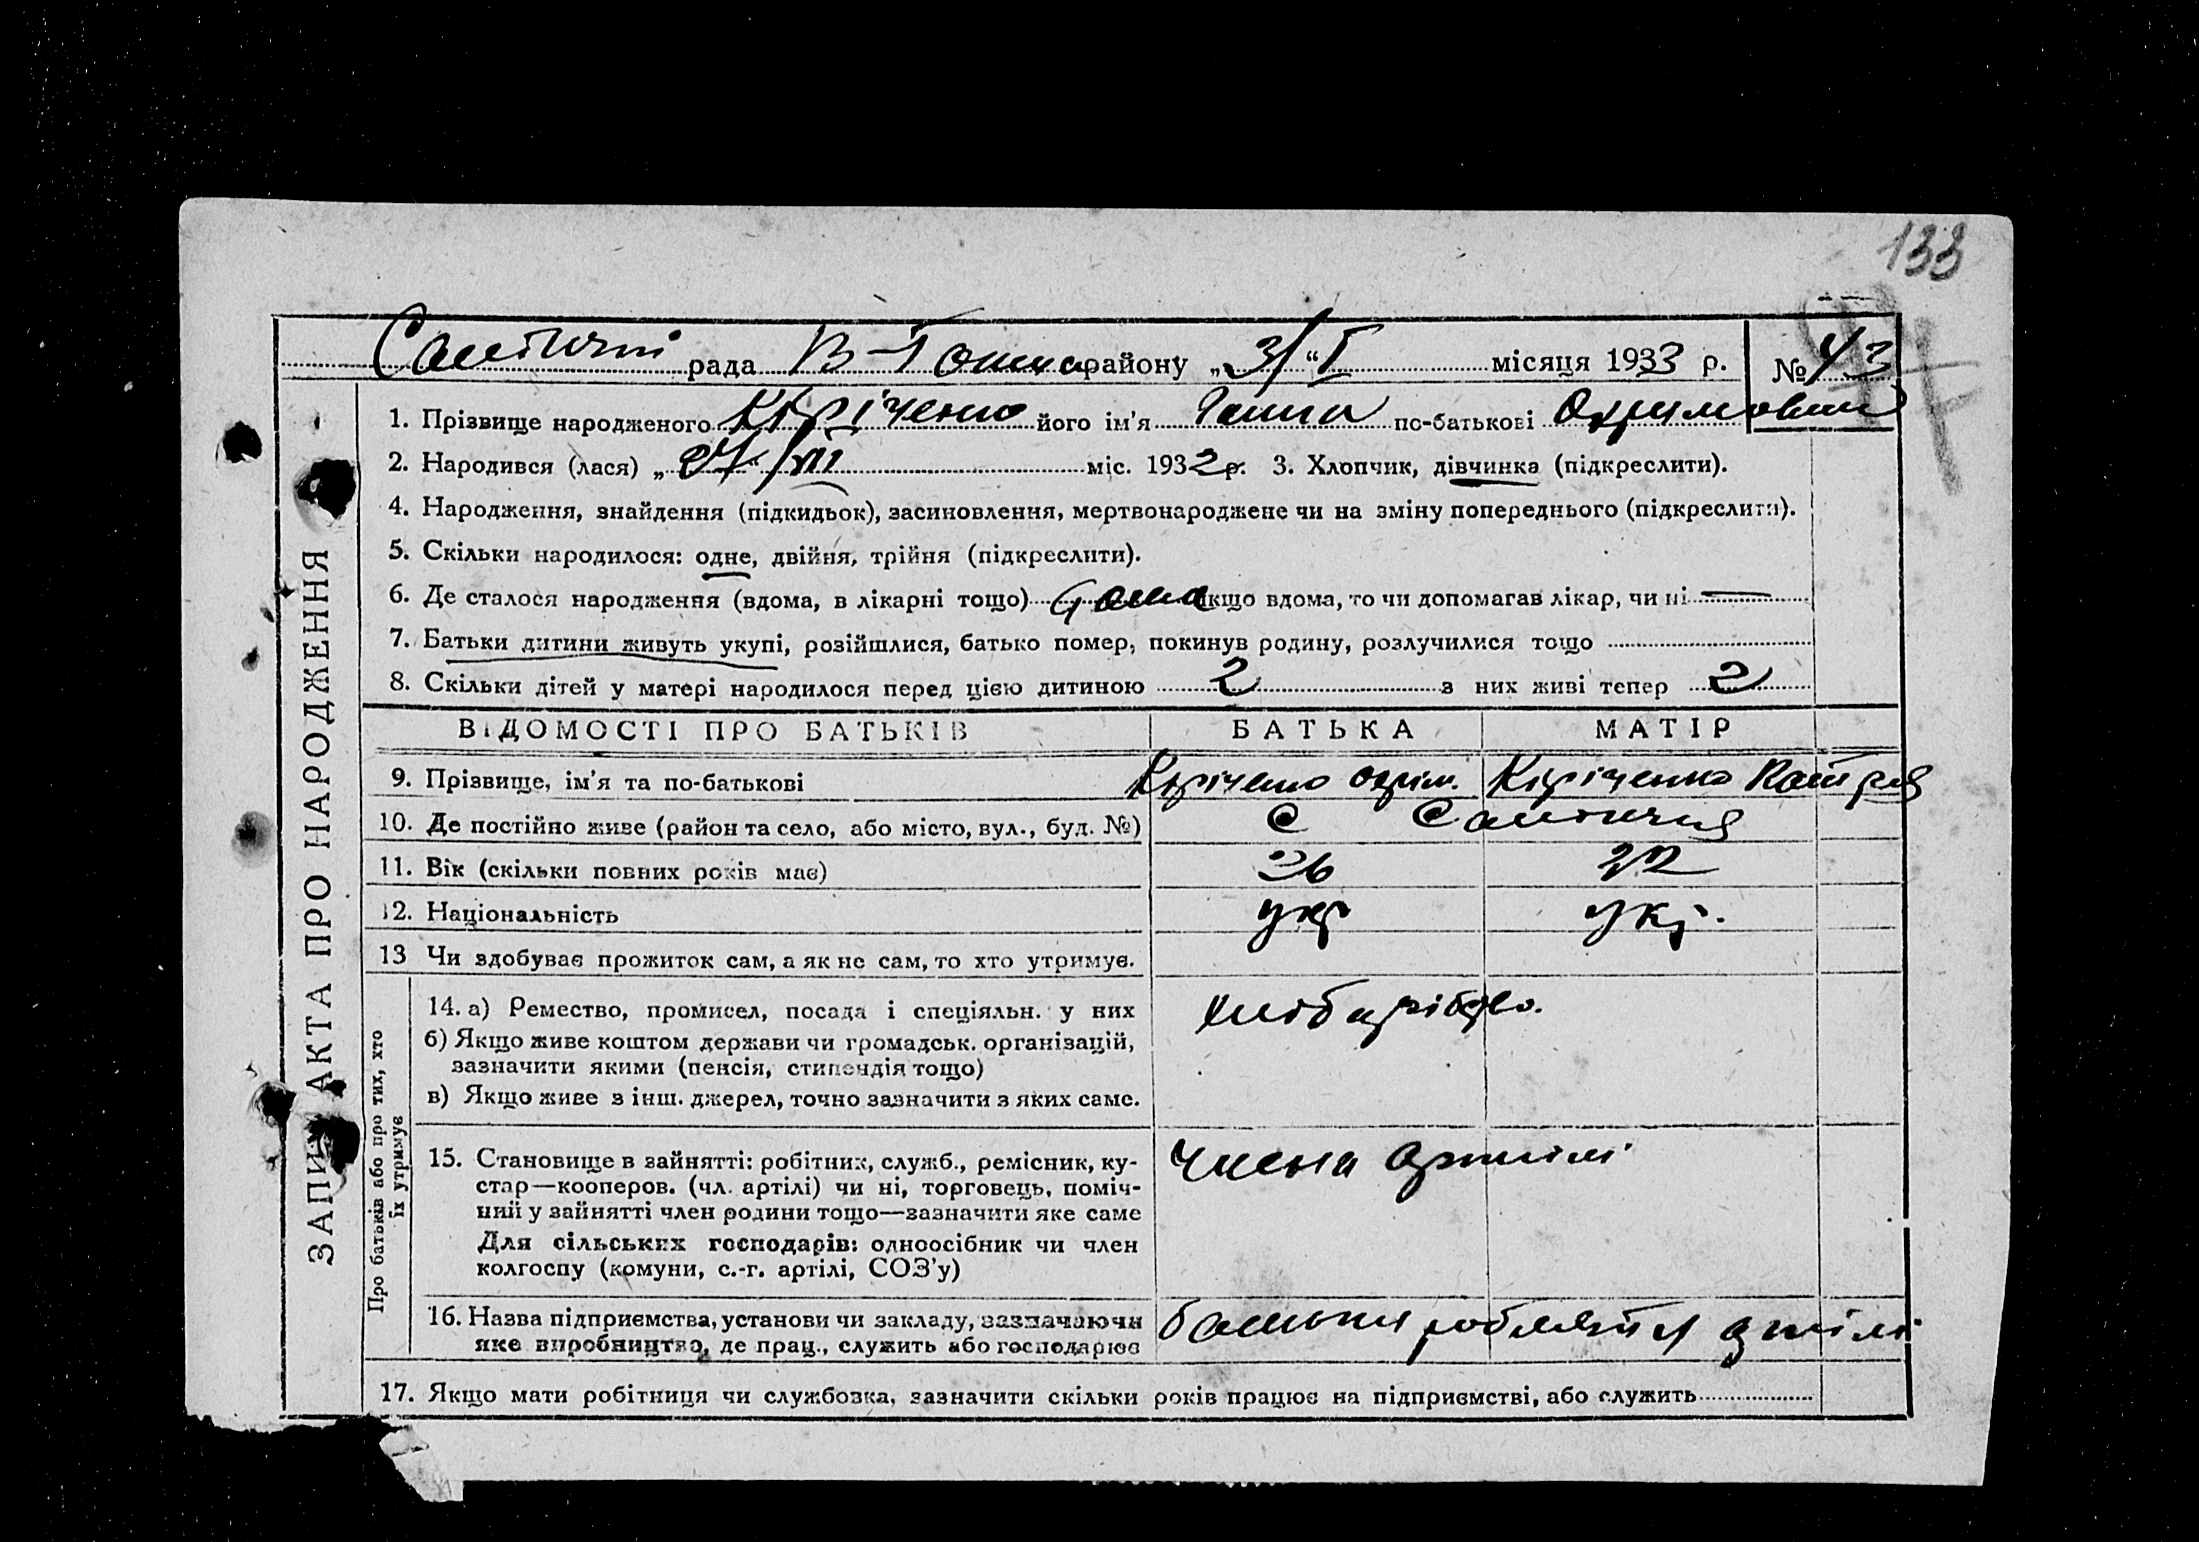 133
рада районy „31“ I місяця 1933 р. № 43
1. Прізвище народженого Кіріченко його ім'я Ганна по-батькові
2. Народився (лася) „ “ VII міс. 1932 р. 3. Хлопчик, дівчинка (підкреслити).
4. Народження, знайдення (підкидьок), засиновлення, мертвонароджене чи на зміну попереднього (підкреслити).
5. Скільки народилося: одне, двійня, трійня (підкреслити).
6. Де сталося народження (вдома, в лікарні тощо) дома якщо вдома, то чи допомагав лікар, чи ні —
7. Батьки дитини живуть укупі, розійшлися, батько помер, покинув родину, розлучилися тощо
8. Скільки дітей у матері народилося перед цією дитиною 2 з них живі тепер 2
ВІДОМОСТІ ПРО БАТЬКІВ БАТЬКА МАТІР
9. Прізвище, ім'я та по-батькові Кіріченко Кіріченко
10. Де постійно живе (район та село, або місто, вул., буд. №) С
11. Вік (скільки повних років має) 26 22
12. Національність укр укр.
13 Чи здобуває прожиток сам, а як не сам, то хто утримує.
14. а) Ремество, промисел, посада і спеціяльн. у них
б) Якщо живе коштом держави чи громадськ. організацій,
зазначити якими (пенсія, стипендія тощо)
в) Якщо живе з інш. джерел, точно зазначити з яких саме.
15. Становище в зайнятті: робітник, служб., ремісник, ку-
стар—кооперов. (чл. артілі) чи ні, торговець, поміч-
ний у зайнятті член родини тощо—зазначити яке саме
Для сільських господарів: одноосібник чи член
колгоспу (комуни, с.-г. артілі, СОЗ'у)
члена артілі
16. Назва підприємства, установи чи закладу, зазначаючи
яке виробництво, де прац., служить або господарює
17. Якщо мати робітниця чи службовка, зазначити скільки років працює на підприємстві, або служить
ЗАПИС АКТА ПРО НАРОДЖЕННЯ
Про батьків або про тих, хто
їх утримує